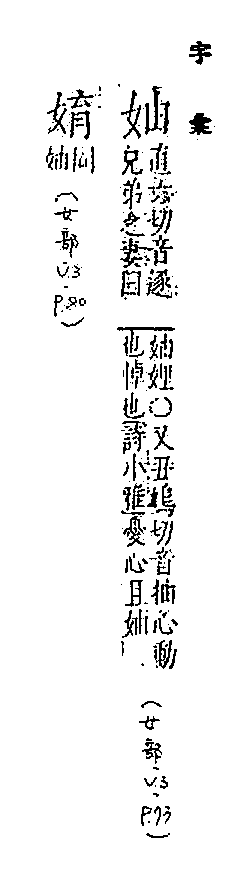 字彙
妯
直六切音逐
兄弟之妻曰
妯娌○又丑鳩切音抽心動
也悼也詩小雅憂心且妯
(女部-V.3-P.73)
同
妯
(女部-V.3-P.80)